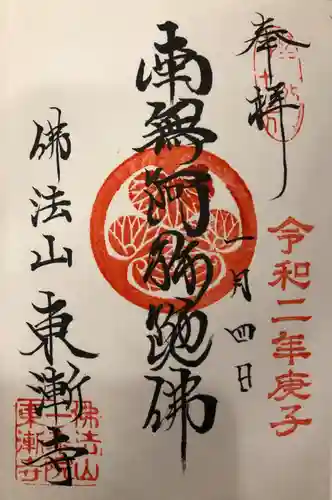 奉拝
令和二年庚子
一月四日
南無阿弥陀佛
佛法山
東漸寺
佛法山
東漸寺